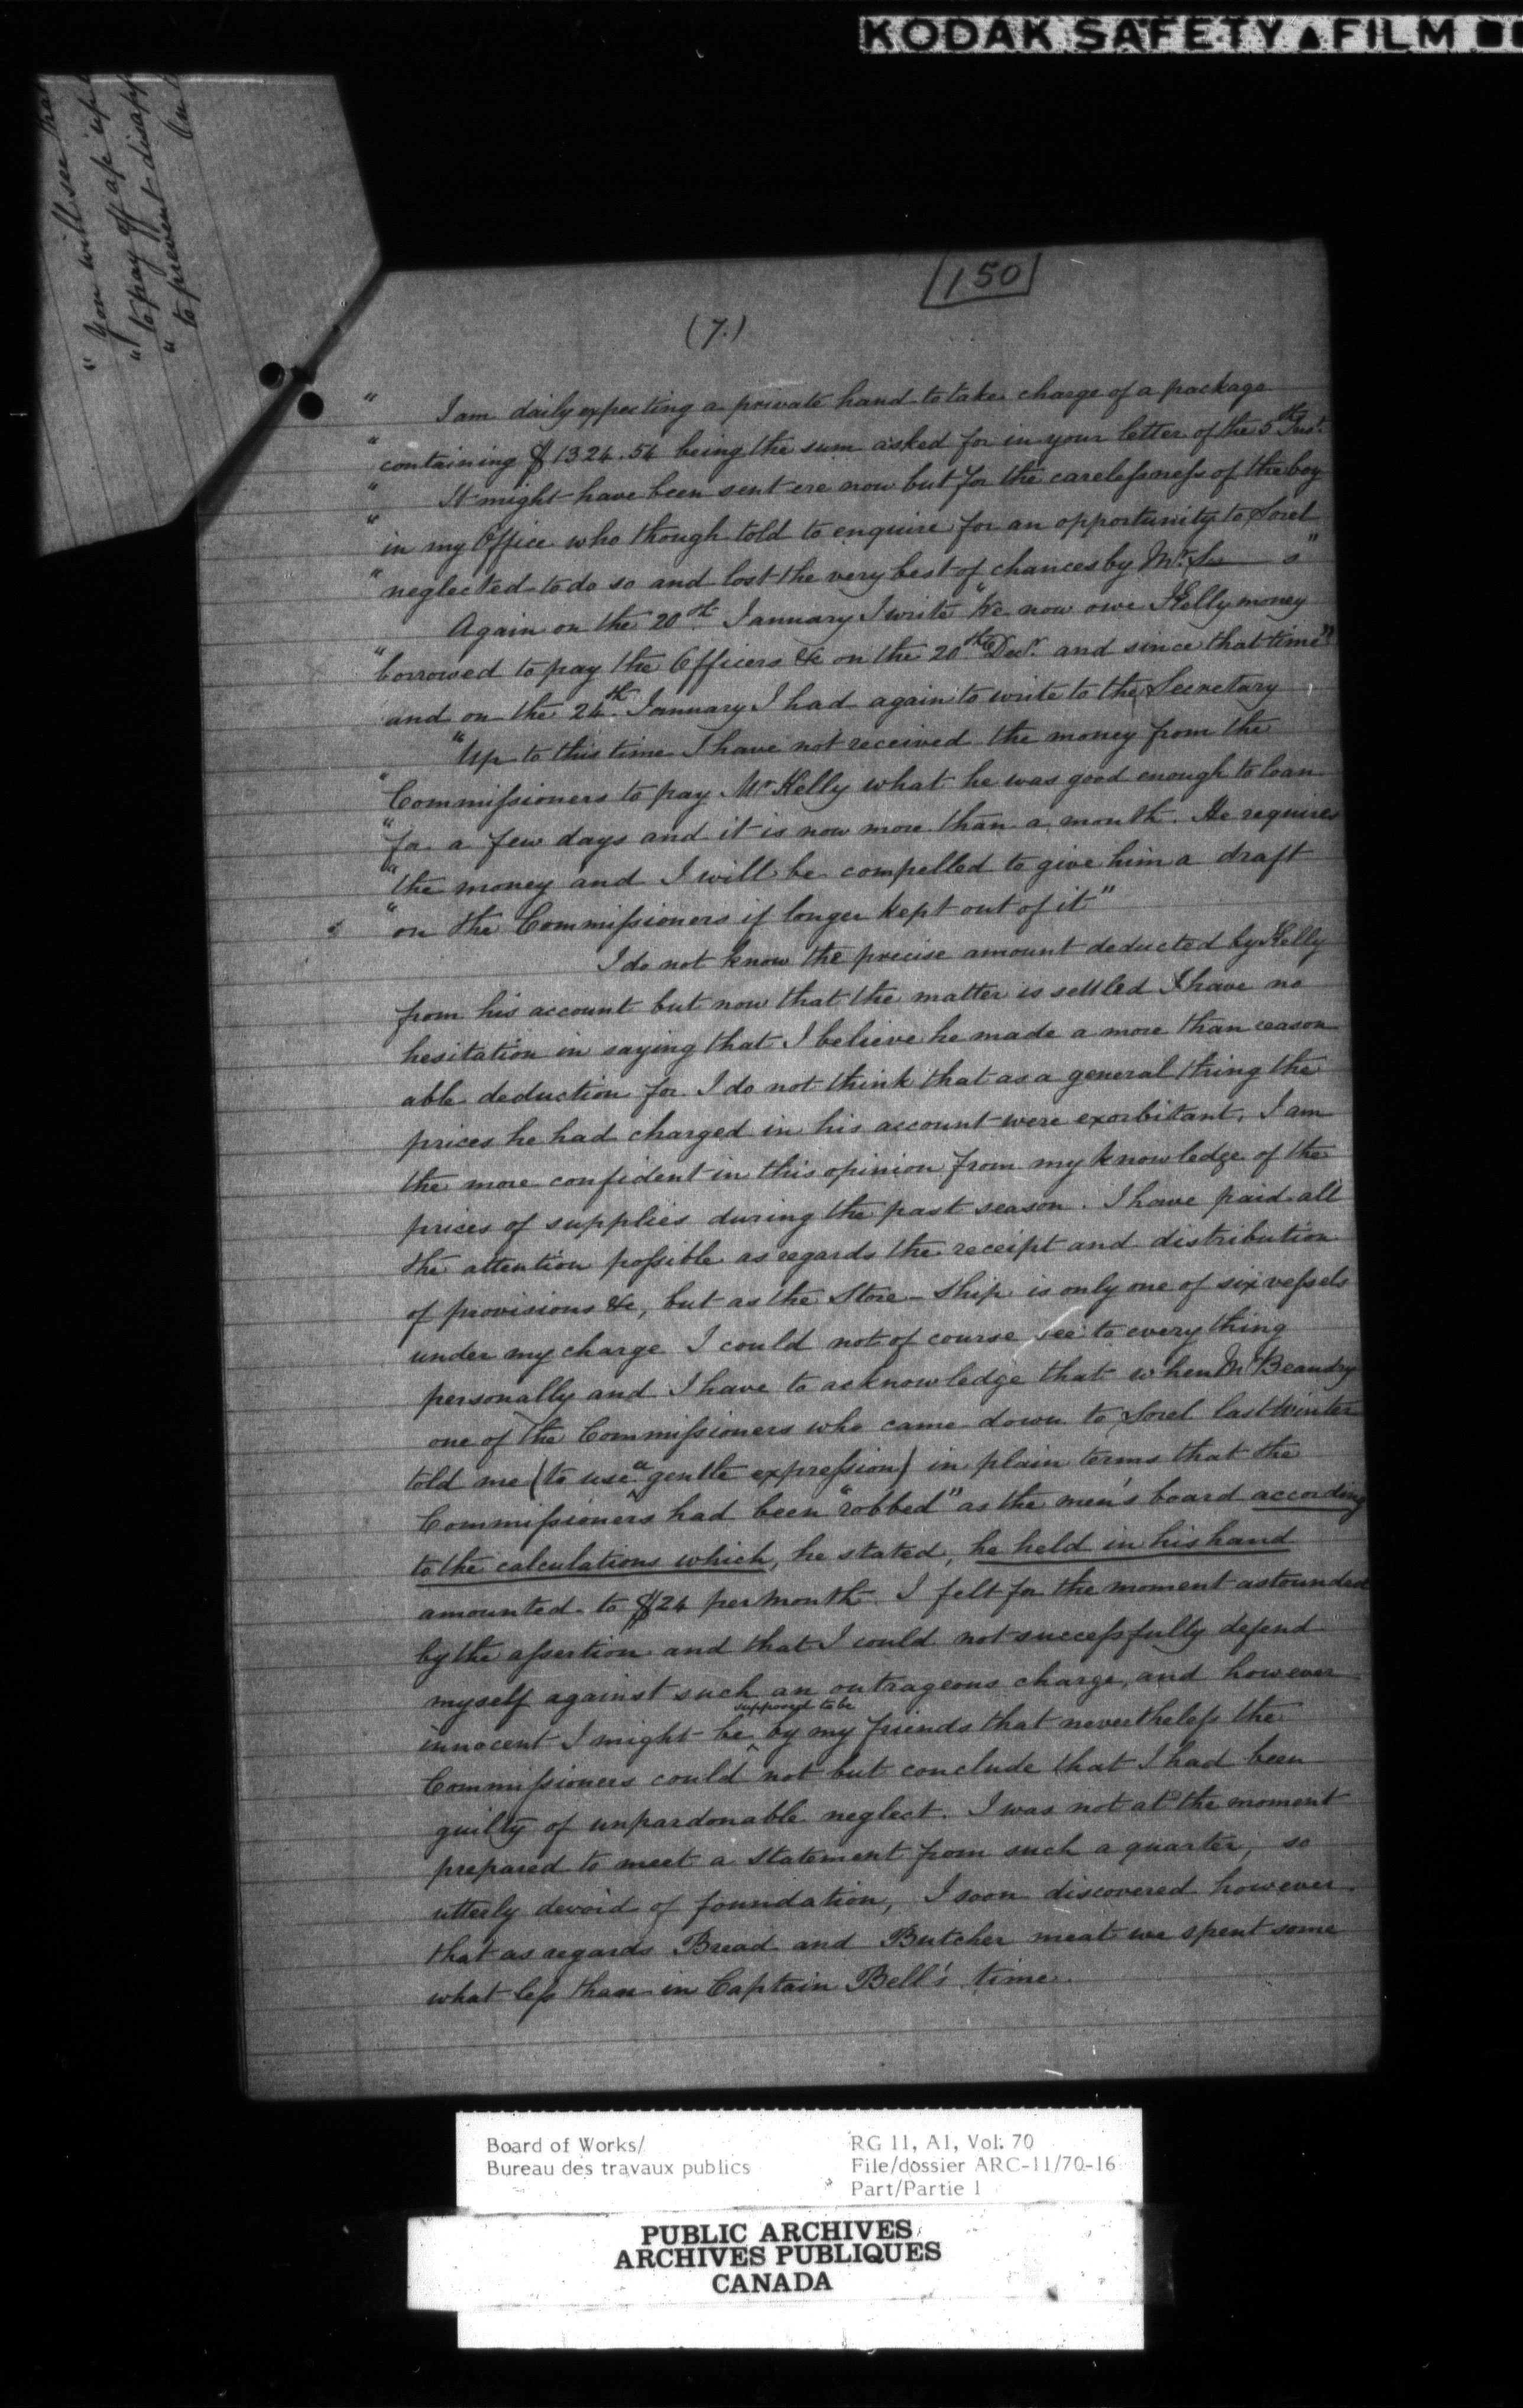 KODAK SAFETY ▲ FILM
" You will see that
" to pay off
" to prevent
150
(7.)
" I am daily expecting a private hand to take charge of a package
" containing $1324.54 being the sum asked for in your letter of the 5th Inst.
" It might have been sent ere now but for the carelessness of the boy
" in my Office who though told to enquire for an opportunity to Sorel
" neglected to do so and lost the very best of chances by Mr. S— s"
Again on the 20th January I write "We now owe Kelly money
" borrowed to pay the Officers &c on the 20th Decr. and since that time"
and on the 24th January I had again to write to the Secretary
"Up to this time I have not received the money from the
" Commissioners to pay Mr Kelly what he was good enough to loan
" for a few days and it is now more than a month. He requires
" the money and I will be compelled to give him a draft
" on the Commissioners if longer kept out of it"
I do not know the precise amount deducted by Kelly
from his account but now that the matter is settled I have no
hesitation in saying that I believe he made a more than reason
able deduction for I do not think that as a general thing the
prices he had charged in his account were exorbitant. I am
the more confident in this opinion from my knowledge of the
prices of supplies during the past season. I have paid all
the attention possible as regards the receipt and distribution
of provisions &c, but as the Store-Ship is only one of six vessels
under my charge I could not of course see to everything
personally and I have to acknowledge that when Mr Beaudry
one of the Commissioners who came down to Sorel last Winter
told me (to use a gentle expression) in plain terms that the
Commissioners had been "robbed" as the men's board according
to the calculations which, he stated, he held in his hand
amounted to $24 per month. I felt for the moment astounded
by the assertion and that I could not successfully defend
myself against such an outrageous charge, and however
innocent I might be supposed to be by my friends that nevertheless the
Commissioners could not but conclude that I had been
guilty of unpardonable neglect. I was not at the moment
prepared to meet a statement from such a quarter, so
utterly devoid of foundation, I soon discovered however
that as regards Bread and Butcher meat we spent some
what less than in Captain Bell's time.
Board of Works/
Bureau des travaux publics
RG 11, A1, Vol. 70
File/dossier ARC-11/70-16
Part/Partie 1
PUBLIC ARCHIVES
ARCHIVES PUBLIQUES
CANADA